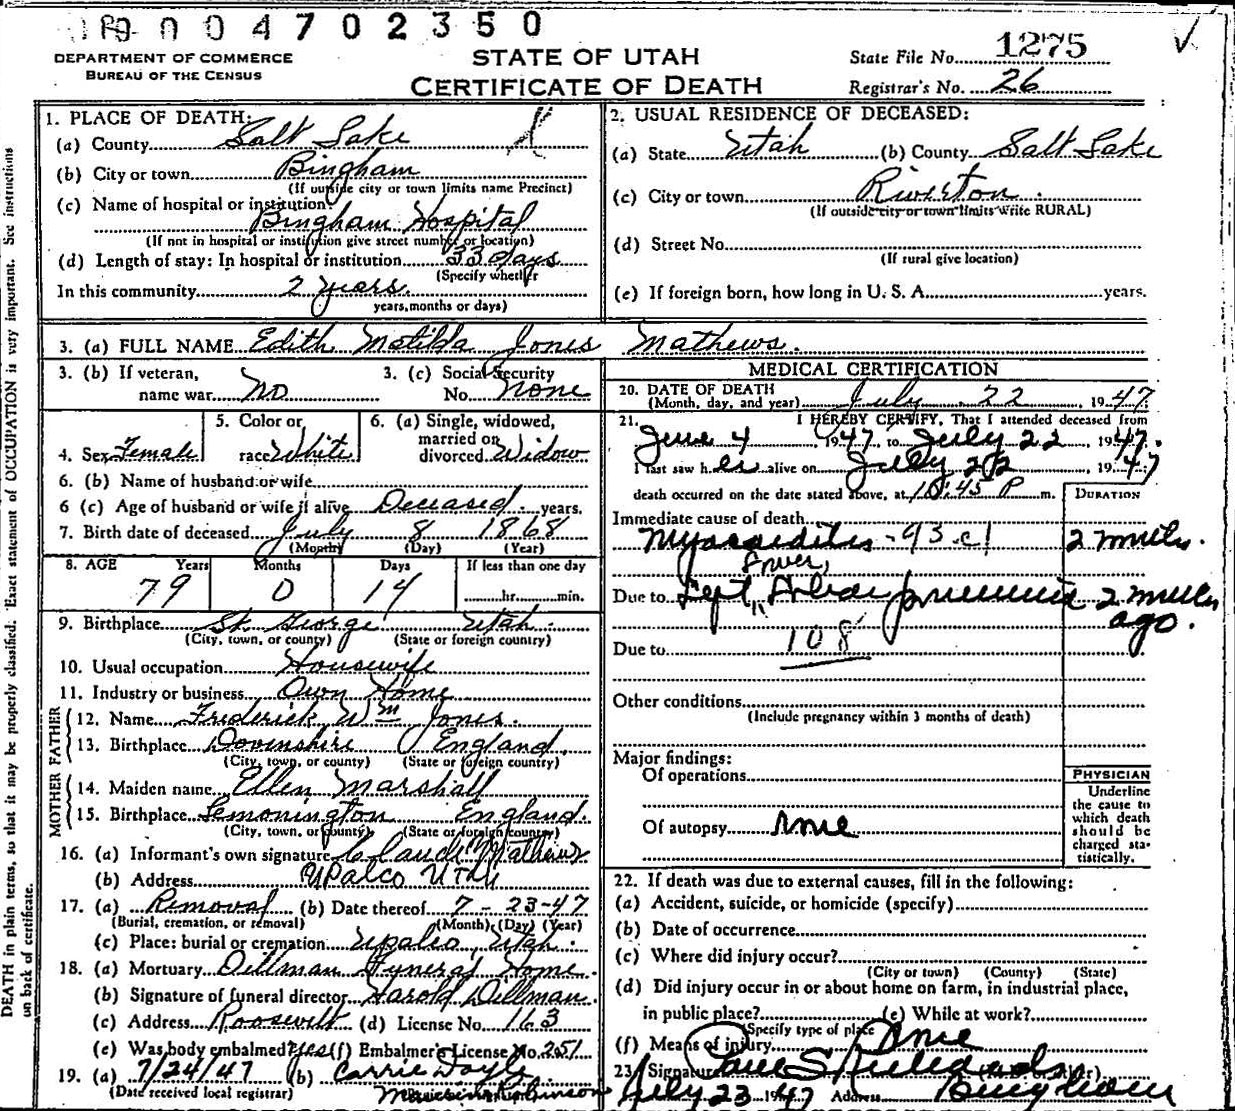 0 0 4 7 0 2 3 5 0
DEPARTMENT OF COMMERCE
BUREAU OF THE CENSUS
STATE OF UTAH
CERTIFICATE OF DEATH
State File No. 1275
Registrar's No. 26
1. PLACE OF DEATH:
(a) County Salt Lake
(b) City or town Bingham
(If outside city or town limits name Precinct)
(c) Name of hospital or institution:
Bingham Hospital
(If not in hospital or institution give street number or location)
(d) Length of stay: In hospital or institution 33 days
(Specify whether
In this community 2 years.
years, months or days)
2. USUAL RESIDENCE OF DECEASED:
(a) State Utah (b) County Salt Lake
(c) City or town Riverton.
(If outside city or town limits write RURAL)
(d) Street No.
(If rural give location)
(e) If foreign born, how long in U. S. A. years.
3. (a) FULL NAME Edith Matilda Jones Mathews.
3. (b) If veteran, name war No
3. (c) Social Security No. None
4. Sex Female
5. Color or race White
6. (a) Single, widowed, married or divorced Widow
6. (b) Name of husband or wife
6 (c) Age of husband or wife if alive Deceased. years.
7. Birth date of deceased July 8 1868
(Month) (Day) (Year)
8. AGE Years Months Days If less than one day
79 0 14 hr. min.
9. Birthplace St. George Utah.
(City, town, or county) (State or foreign country)
10. Usual occupation Housewife
11. Industry or business Own Home
FATHER
12. Name Frederick Wm Jones.
13. Birthplace Dovinshire England.
(City, town, or county) (State or foreign country)
MOTHER
14. Maiden name Ellen Marshall
15. Birthplace Lemonington England.
(City, town, or county) (State or foreign country)
16. (a) Informant's own signature Claude Mathews
(b) Address Upalco Utah
17. (a) Removal (b) Date thereof 7-23-47
(Burial, cremation, or removal) (Month) (Day) (Year)
(c) Place: burial or cremation Upalco, Utah.
18. (a) Mortuary Dillman Funeral Home.
(b) Signature of funeral director Harold Dillman.
(c) Address Roosevelt (d) License No. 163
(e) Was body embalmed? Yes (f) Embalmer's License No. 251
19. (a) 7/24/47 (b) Carrie Doyle
(Date received local registrar)
MEDICAL CERTIFICATION
20. DATE OF DEATH
(Month, day, and year) July 22, 1947
21. I HEREBY CERTIFY, That I attended deceased from
June 4 1947, to July 22, 1947.
I last saw her alive on July 22, 1947
death occurred on the date stated above, at 10:45 P m.
DURATION
Immediate cause of death
Myocarditis - 93 c
Due to Lobar pneumonia
ago.
108
Due to
Other conditions
(Include pregnancy within 3 months of death)
Major findings:
Of operations
Of autopsy None
PHYSICIAN
Underline the cause to which death should be charged statistically.
22. If death was due to external causes, fill in the following:
(a) Accident, suicide, or homicide (specify)
(b) Date of occurrence
(c) Where did injury occur?
(City or town) (County) (State)
(d) Did injury occur in or about home on farm, in industrial place,
in public place? (e) While at work?
(Specify type of place
(f) Means of injury None
23. Signature Paul S Richards
July 23 1947 Address Bingham
DEATH in plain terms, so that it may be properly classified. Exact statement of OCCUPATION is very important. See instructions
on back of certificate.